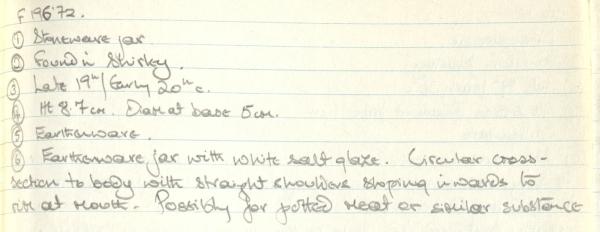 F 196.72.
① Stoneware jar
② Found in Shirley.
③ Late 19th/Early 20th c.
④ Ht 8.7cm. Diam at base 5cm.
⑤ Earthenware.
⑥ Earthenware jar with white salt glaze. Circular cross-
section to body with straight shoulders sloping inwards to
rim at mouth. Possibly for potted meat or similar substance